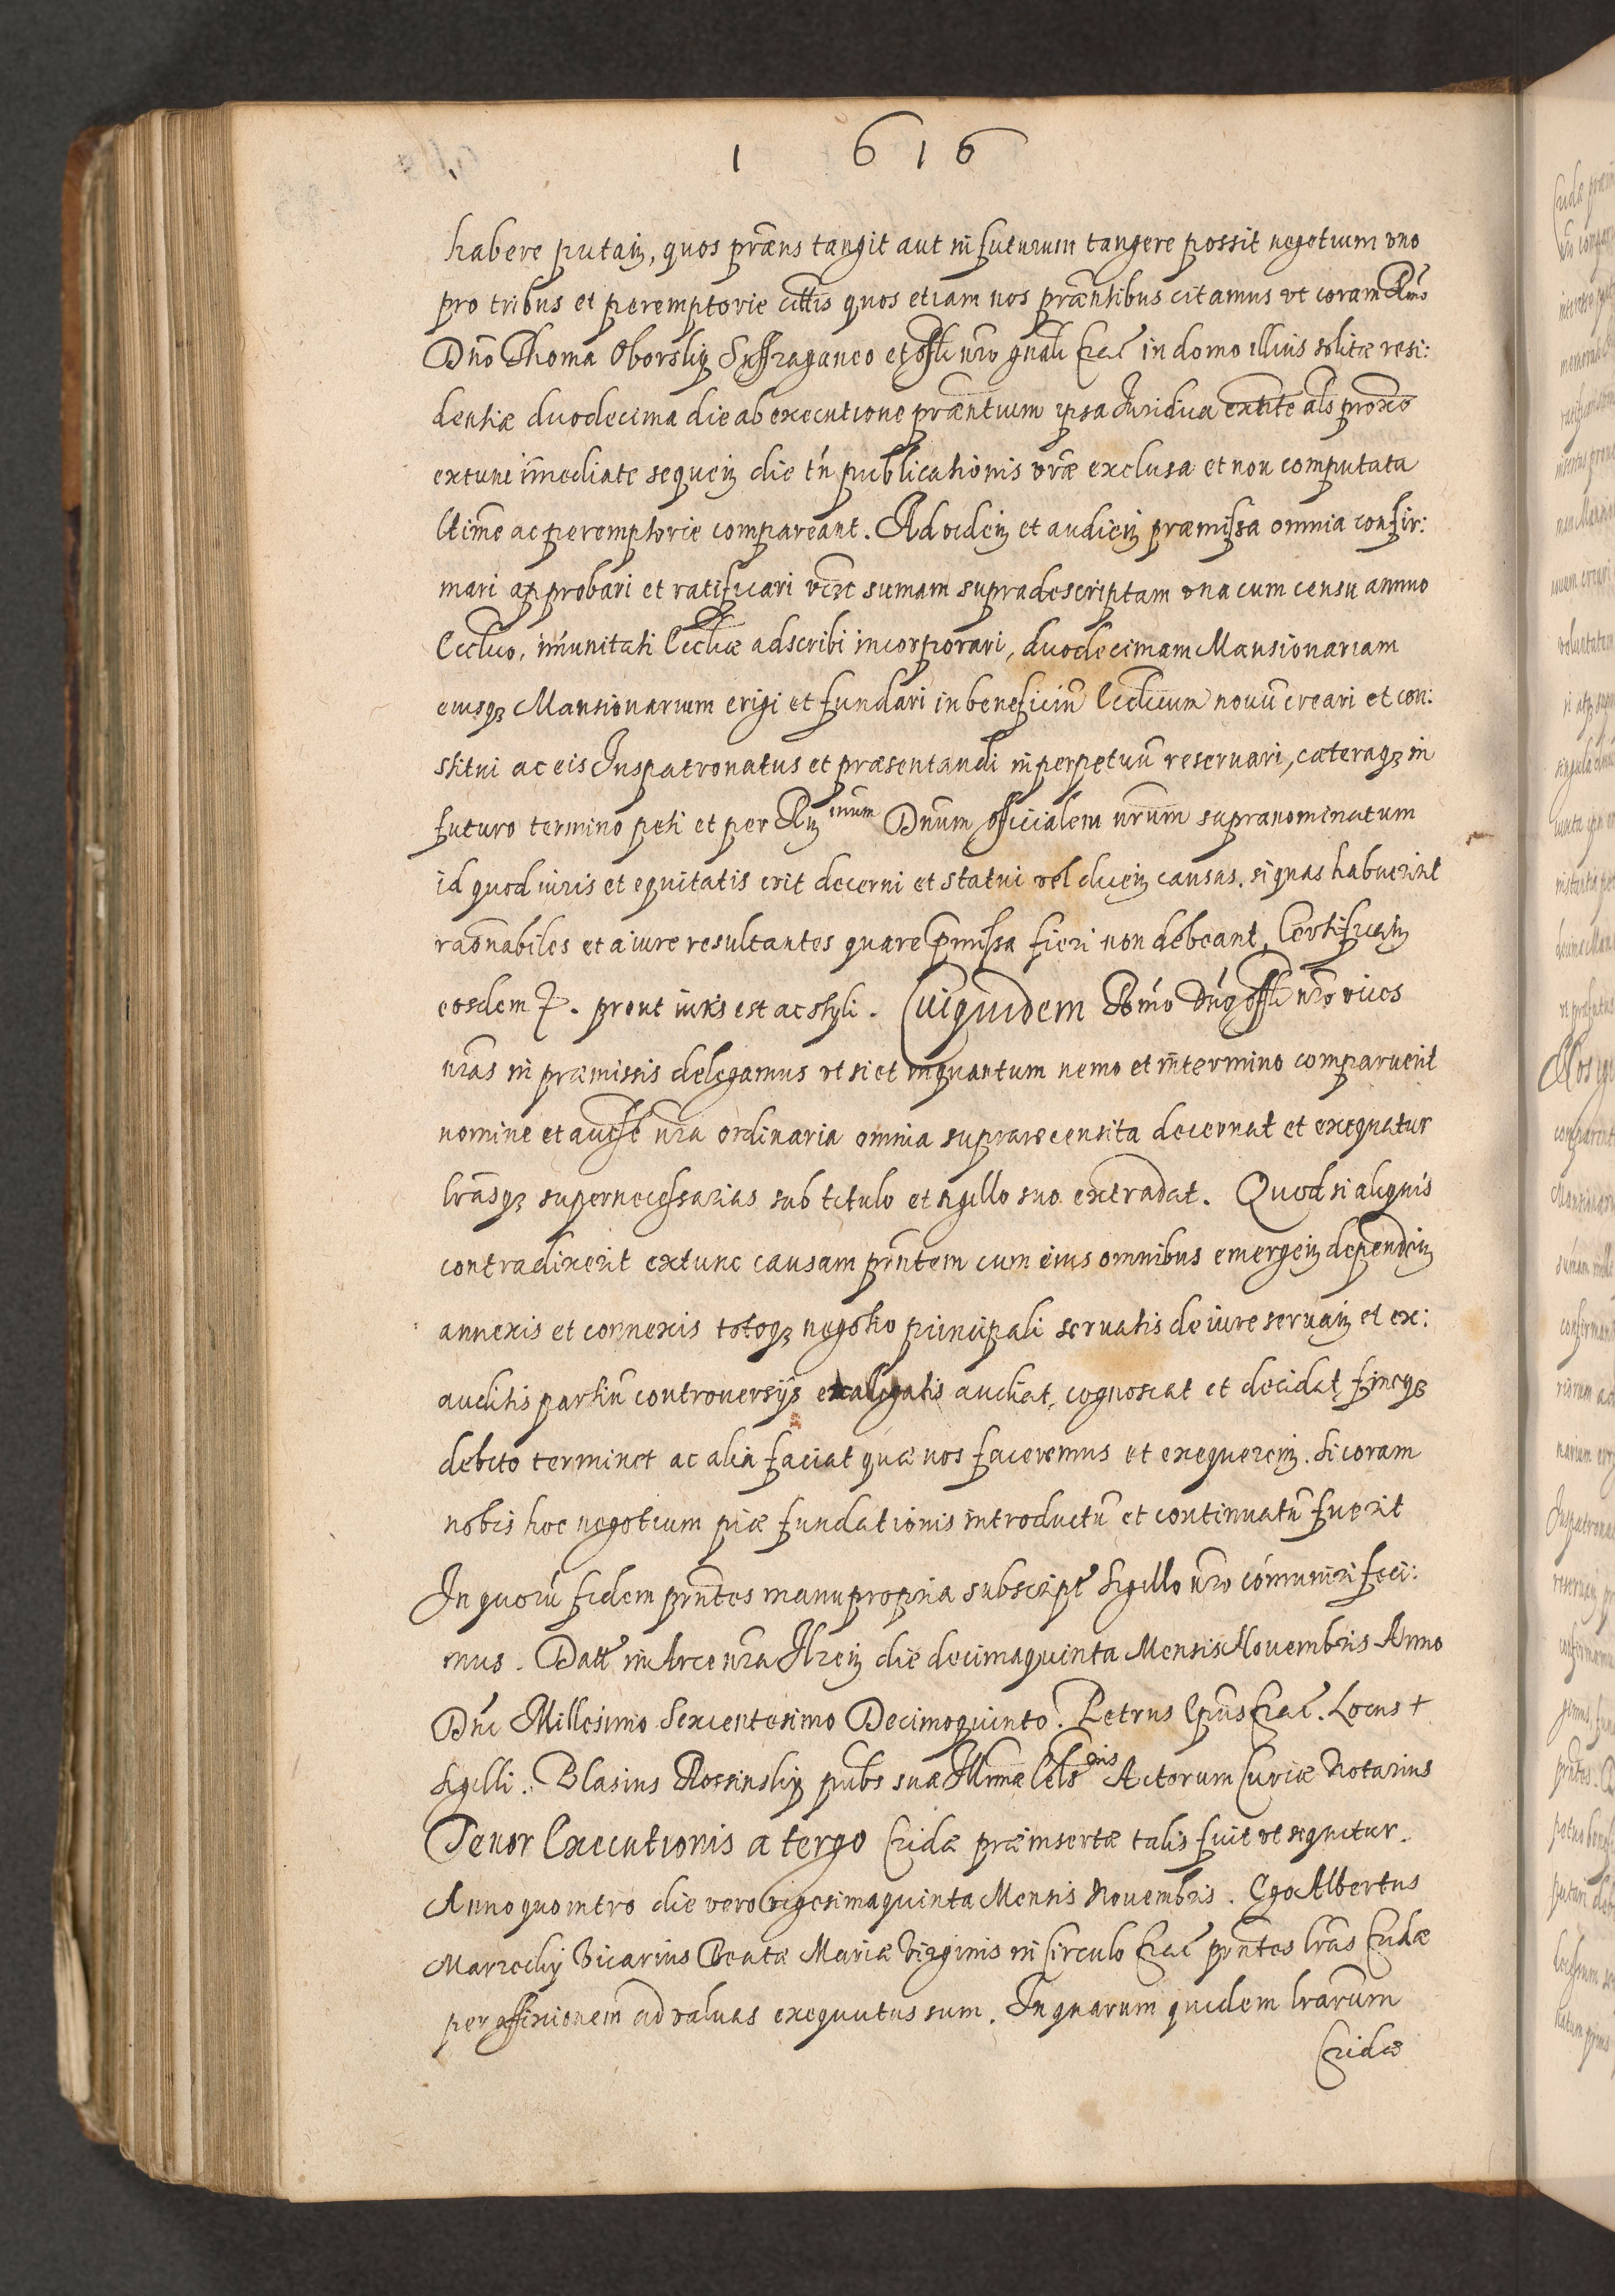 1 6 1 6
habere putañ, quos præns tangit aut in futurum tangere possit negotium vno
pro tribus et peremptorie citetis quos etiam nos præntibus citamus vt coram Rmo
Dno Thoma Oborsky Suffraganeo et offli nro gnali Crac in domo illius solitæ resi:
dentiæ duodecima die ab executione præntium ipsa Juridica extite als proxo
extunc immediate sequeñ die tn publicationis vræ exclusa et non computata
ltime ac peremptorie compareant. Ad videñ et audieñ præmissa omnia confir:
mari approbari et ratificari sumam supradescriptam vna cum censu annuo
Eccltico, imunitati Eccticæ adscribi incorporari, duodecimam Mansionariam
eiusq3 Mansionarium erigi et fundari in beneficiũ Eccticum nouũ creari et con:
stitui ac eis Juspatronatus et præsentandi in perpetuũ reseruari, cæteraq3 in
futuro termino peti et per Rñ Dnum officialem nrum supranominatum
id quod iuris et equitatis erit decerni et statui vel diceñ causas. si quas habuerint
raonabiles et a iure resultantes quare pmissa fieri non debeant, Certificañ
eosdem . prout iuris est ac styli. Cuiquidem Rdmo Dno offli nro vices
nras in præmissis delegamus vt si et inquantum nemo et in termino comparuerit
nomine et aucthe nra ordinaria omnia suprarecensita decernat et exequatur
lrasq3 supernecessarias sub titulo et sigillo suo extradat. Quod si aliquis
contradixerit extunc causam prntem cum eius omnibus emergeñ dependeñ
annexis et connexis totoq3 negotio principali seruatis de iure seruañ et ex:
auditis partiũ controuersijs et aligatis audiat, cognoscat et decidat fineq3
debito terminet ac alia faciat quæ nos faceremus et exequereñ. si coram
nobis hoc negotium piæ fundationis introductũ et continuatũ fuerit
In quorũ fidem prntes manu propria subscript Sigillo nro comuniri feci:
mus. Datt in Arce nra Ilzeñ die decimaquinta Mensis Nouembris Anno
Dni Millesimo Sexcentesimo Decimoquinto. Petrus Epus Crac. Locus +
Sigilli. Blasius Rossinsky pubs suæ Illmæ Cels nis Actorum Curiæ Notarius
Tenor Executionis a tergo Cridæ præinsertæ talis fuit vt sequitur.
Anno quo intro die vero vigesimaquinta Mensis Nouembris. Ego Albertus
Marzecky Vicarius Beatæ Mariæ Virginis in Circulo Crac prntes lras Cridæ
per affixionem ad valuas exequutus sum. In quarum quidem lrarum
Cridæ